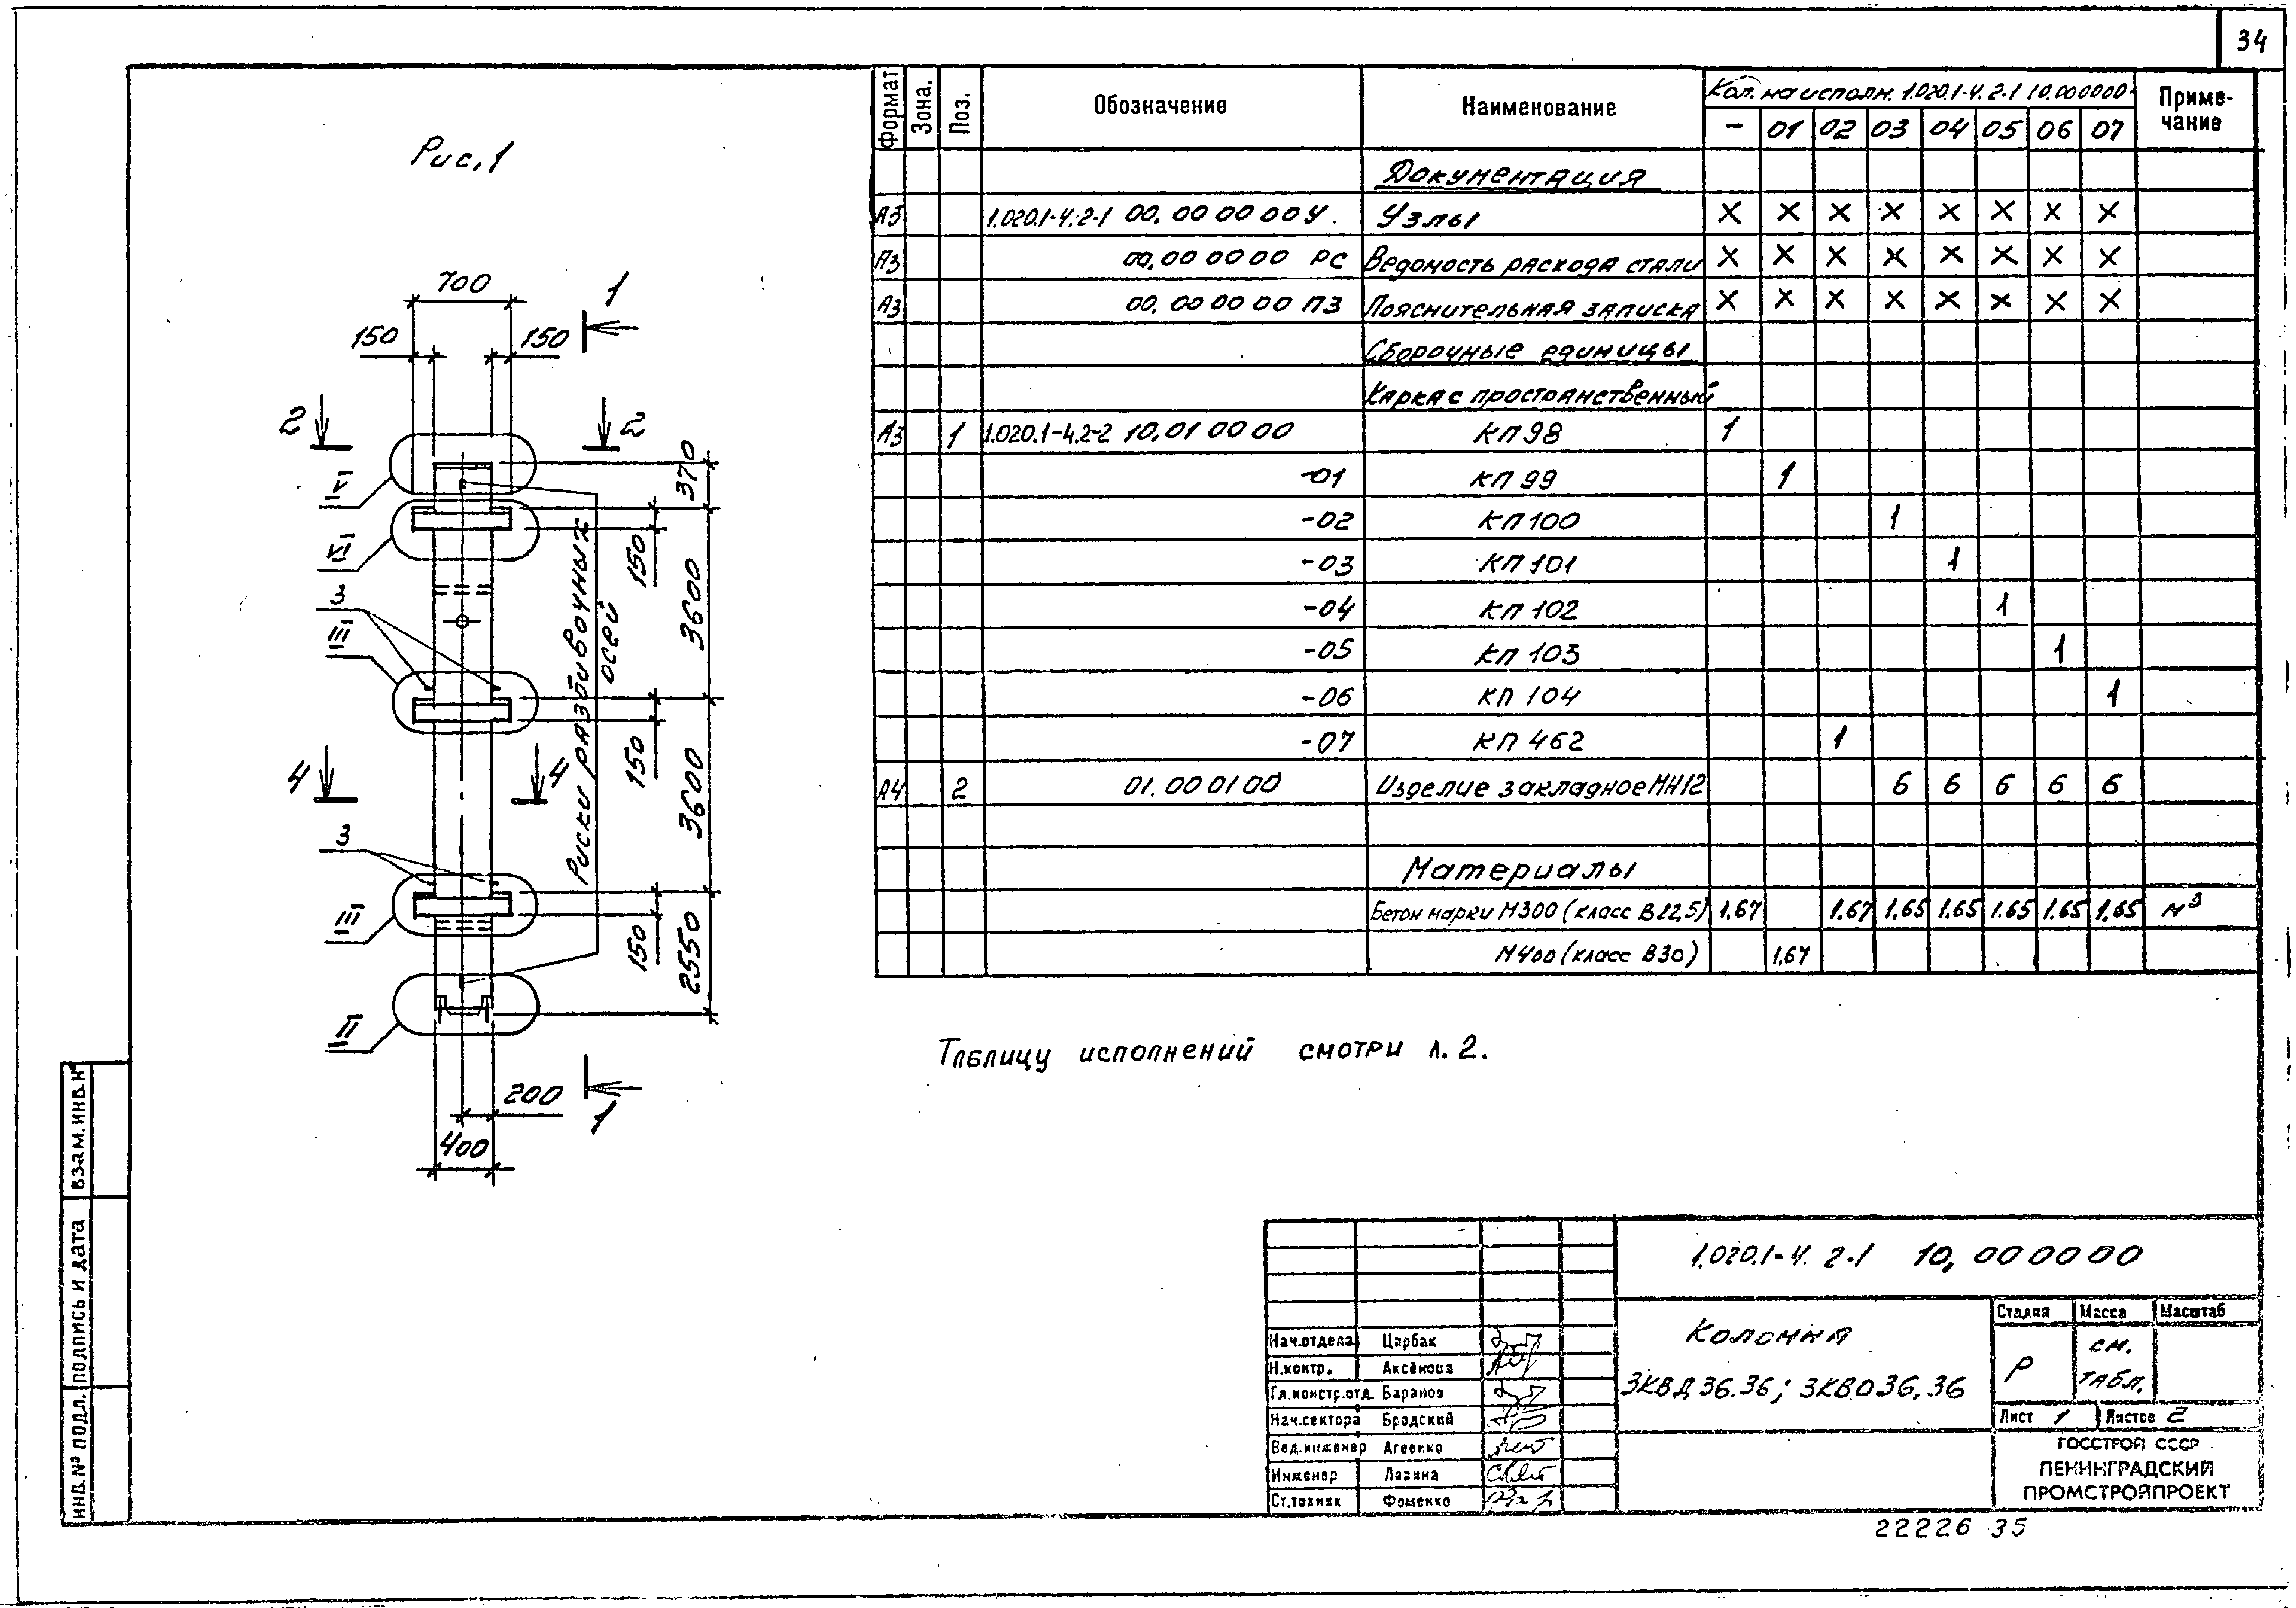 34
Рис. 1
700
150
150
1
2
2
V
VI
370
150
3600
3
III
Риски разбивочных
осей
150
3600
4
4
3
III
150
2550
II
200
1
400
Формат Зона. Поз. Обозначение Наименование Кол. на исполн. 1.020.1-4.2-1 10.000000- Приме-
чание
- 01 02 03 04 05 06 07
Документация
А3 1.020.1-4.2-1 00.00 00 00 У Узлы X X X X X X X X
А3 00.00 00 00 РС Ведомость расхода стали X X X X X X X X
А3 00.00 00 00 ПЗ Пояснительная записка X X X X X X X X
Сборочные единицы
Каркас пространственный
А3 1 1.020.1-4.2-2 10.01 00 00 КП 98 1
-01 КП 99 1
-02 КП 100 1
-03 КП 101 1
-04 КП 102 1
-05 КП 103 1
-06 КП 104 1
-07 КП 462 1
А4 2 01.00 01 00 Изделие закладное МН12 6 6 6 6 6
Материалы
Бетон марки М300 (класс В22,5) 1.67 1.67 1.65 1.65 1.65 1.65 1.65 м3
М400 (класс В30) 1.67
Таблицу исполнений смотри л. 2.
ИНВ.№ ПОДЛ. ПОДПИСЬ И ДАТА ВЗАМ.ИНВ.№
1.020.1-4. 2-1 10.000000
Колонна
3КВД 36.36; 3КВО 36.36
Стадия Масса Масштаб
Р см.
табл.
Лист 1 Листов 2
Нач.отдела Царбак
Н.контр. Аксёнова
Гл.констр.отд. Баранов
Нач.сектора Бродский
Вед.инженер Агеенко
Инженер Левина
Ст.техник Фоменко
ГОССТРОЙ СССР
ЛЕНИНГРАДСКИЙ
ПРОМСТРОЙПРОЕКТ
22226 35